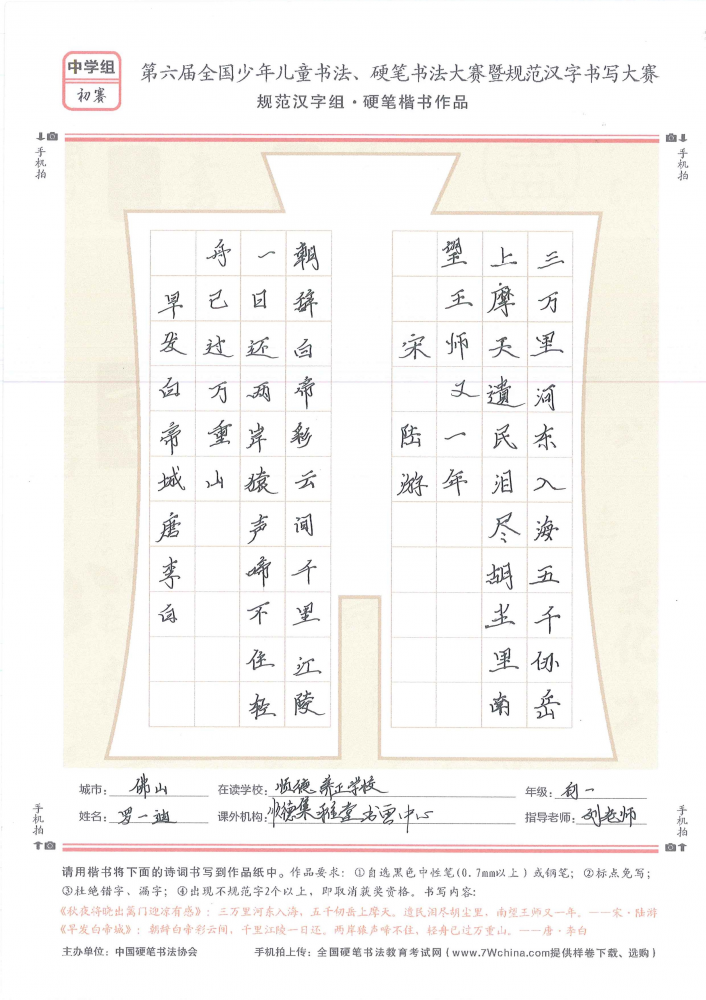 中学组
初赛
第六届全国少年儿童书法、硬笔书法大赛暨规范汉字书写大赛
规范汉字组·硬笔楷书作品
手机拍
手机拍
三万里河东入海五千仞岳
上摩天遺民泪尽胡尘里南
望王师又一年
宋 陆游
朝辞白帝彩云间千里江陵
一日还两岸猿声啼不住轻
舟已过万重山
早发白帝城唐李白
城市：佛山 在读学校：顺德养正学校 年级：初一
姓名：罗一迪 课外机构：顺德集雅堂书画中心 指导老师：刘老师
手机拍
手机拍
请用楷书将下面的诗词书写到作品纸中。作品要求：①自选黑色中性笔(0.7mm以上）或钢笔；②标点免写；
③杜绝错字、漏字；④出现不规范字2个以上，即取消获奖资格。书写内容：
《秋夜将晓出篱门迎凉有感》：三万里河东入海，五千仞岳上摩天。遗民泪尽胡尘里，南望王师又一年。——宋·陆游
《早发白帝城》：朝辞白帝彩云间，千里江陵一日还。两岸猿声啼不住，轻舟已过万重山。——唐·李白
主办单位：中国硬笔书法协会 手机拍上传：全国硬笔书法教育考试网（www.7Wchina.com提供样卷下载、选购）